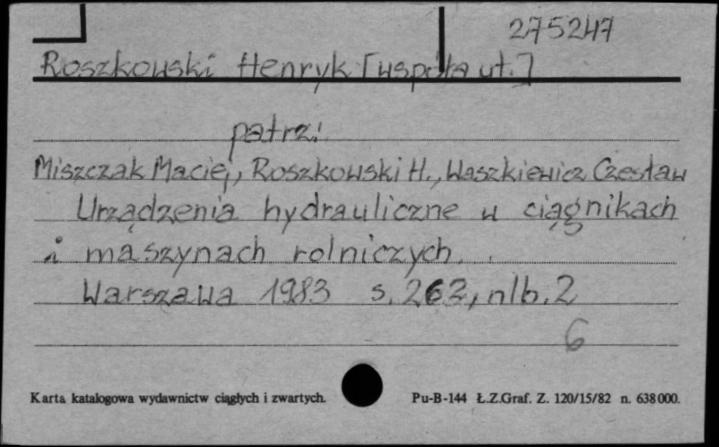 275247
Roszkowski Henryk [współaut.]
patrz:
Miszczak Maciej, Roszkowski H., Waszkiewicz Czesław
Urządzenia hydrauliczne w ciągnikach
i maszynach rolniczych.
Warszawa 1983 s. 262, nlb. 2
6
Karta katalogowa wydawnictw ciągłych i zwartych. Pu-B-144 Ł.Z.Graf. Z. 120/15/82 n. 638000.